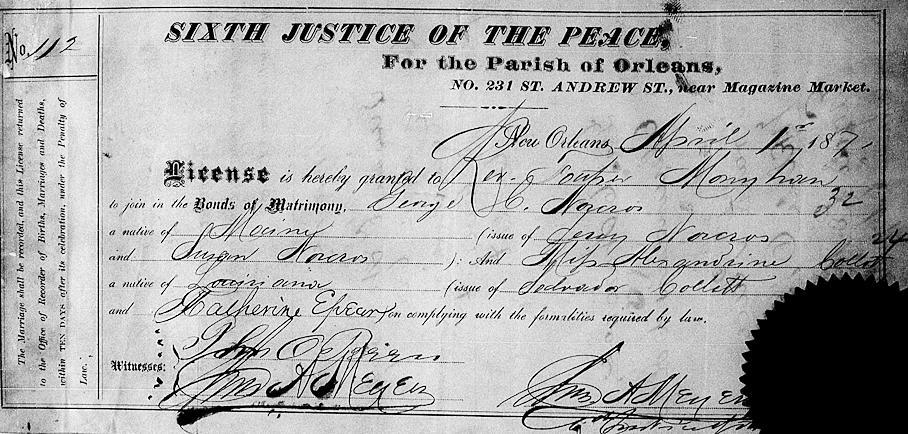 No. 112
SIXTH JUSTICE OF THE PEACE,
For the Parish of Orleans,
NO. 231 ST. ANDREW ST., near Magazine Market.
New Orleans, April 1st 187
License is hereby granted to Rev.
to join in the Bonds of Matrimony, George C. Norcros 32
a native of Maine (issue of Jerry Norcros
and Susan Norcros ): And Miss Alexandrine Collett 24
a native of Louisiana (issue of Salvador Collett
and Katherine on complying with the formalities required by law.
Witnesses: John
Jno A Meyer
Jno A Meyer
The Marriage shall be recorded, and this License returned
to the Office of Recorder of Births, Marriages and Deaths,
within TEN DAYS after its celebration, under the Penalty of
Law.